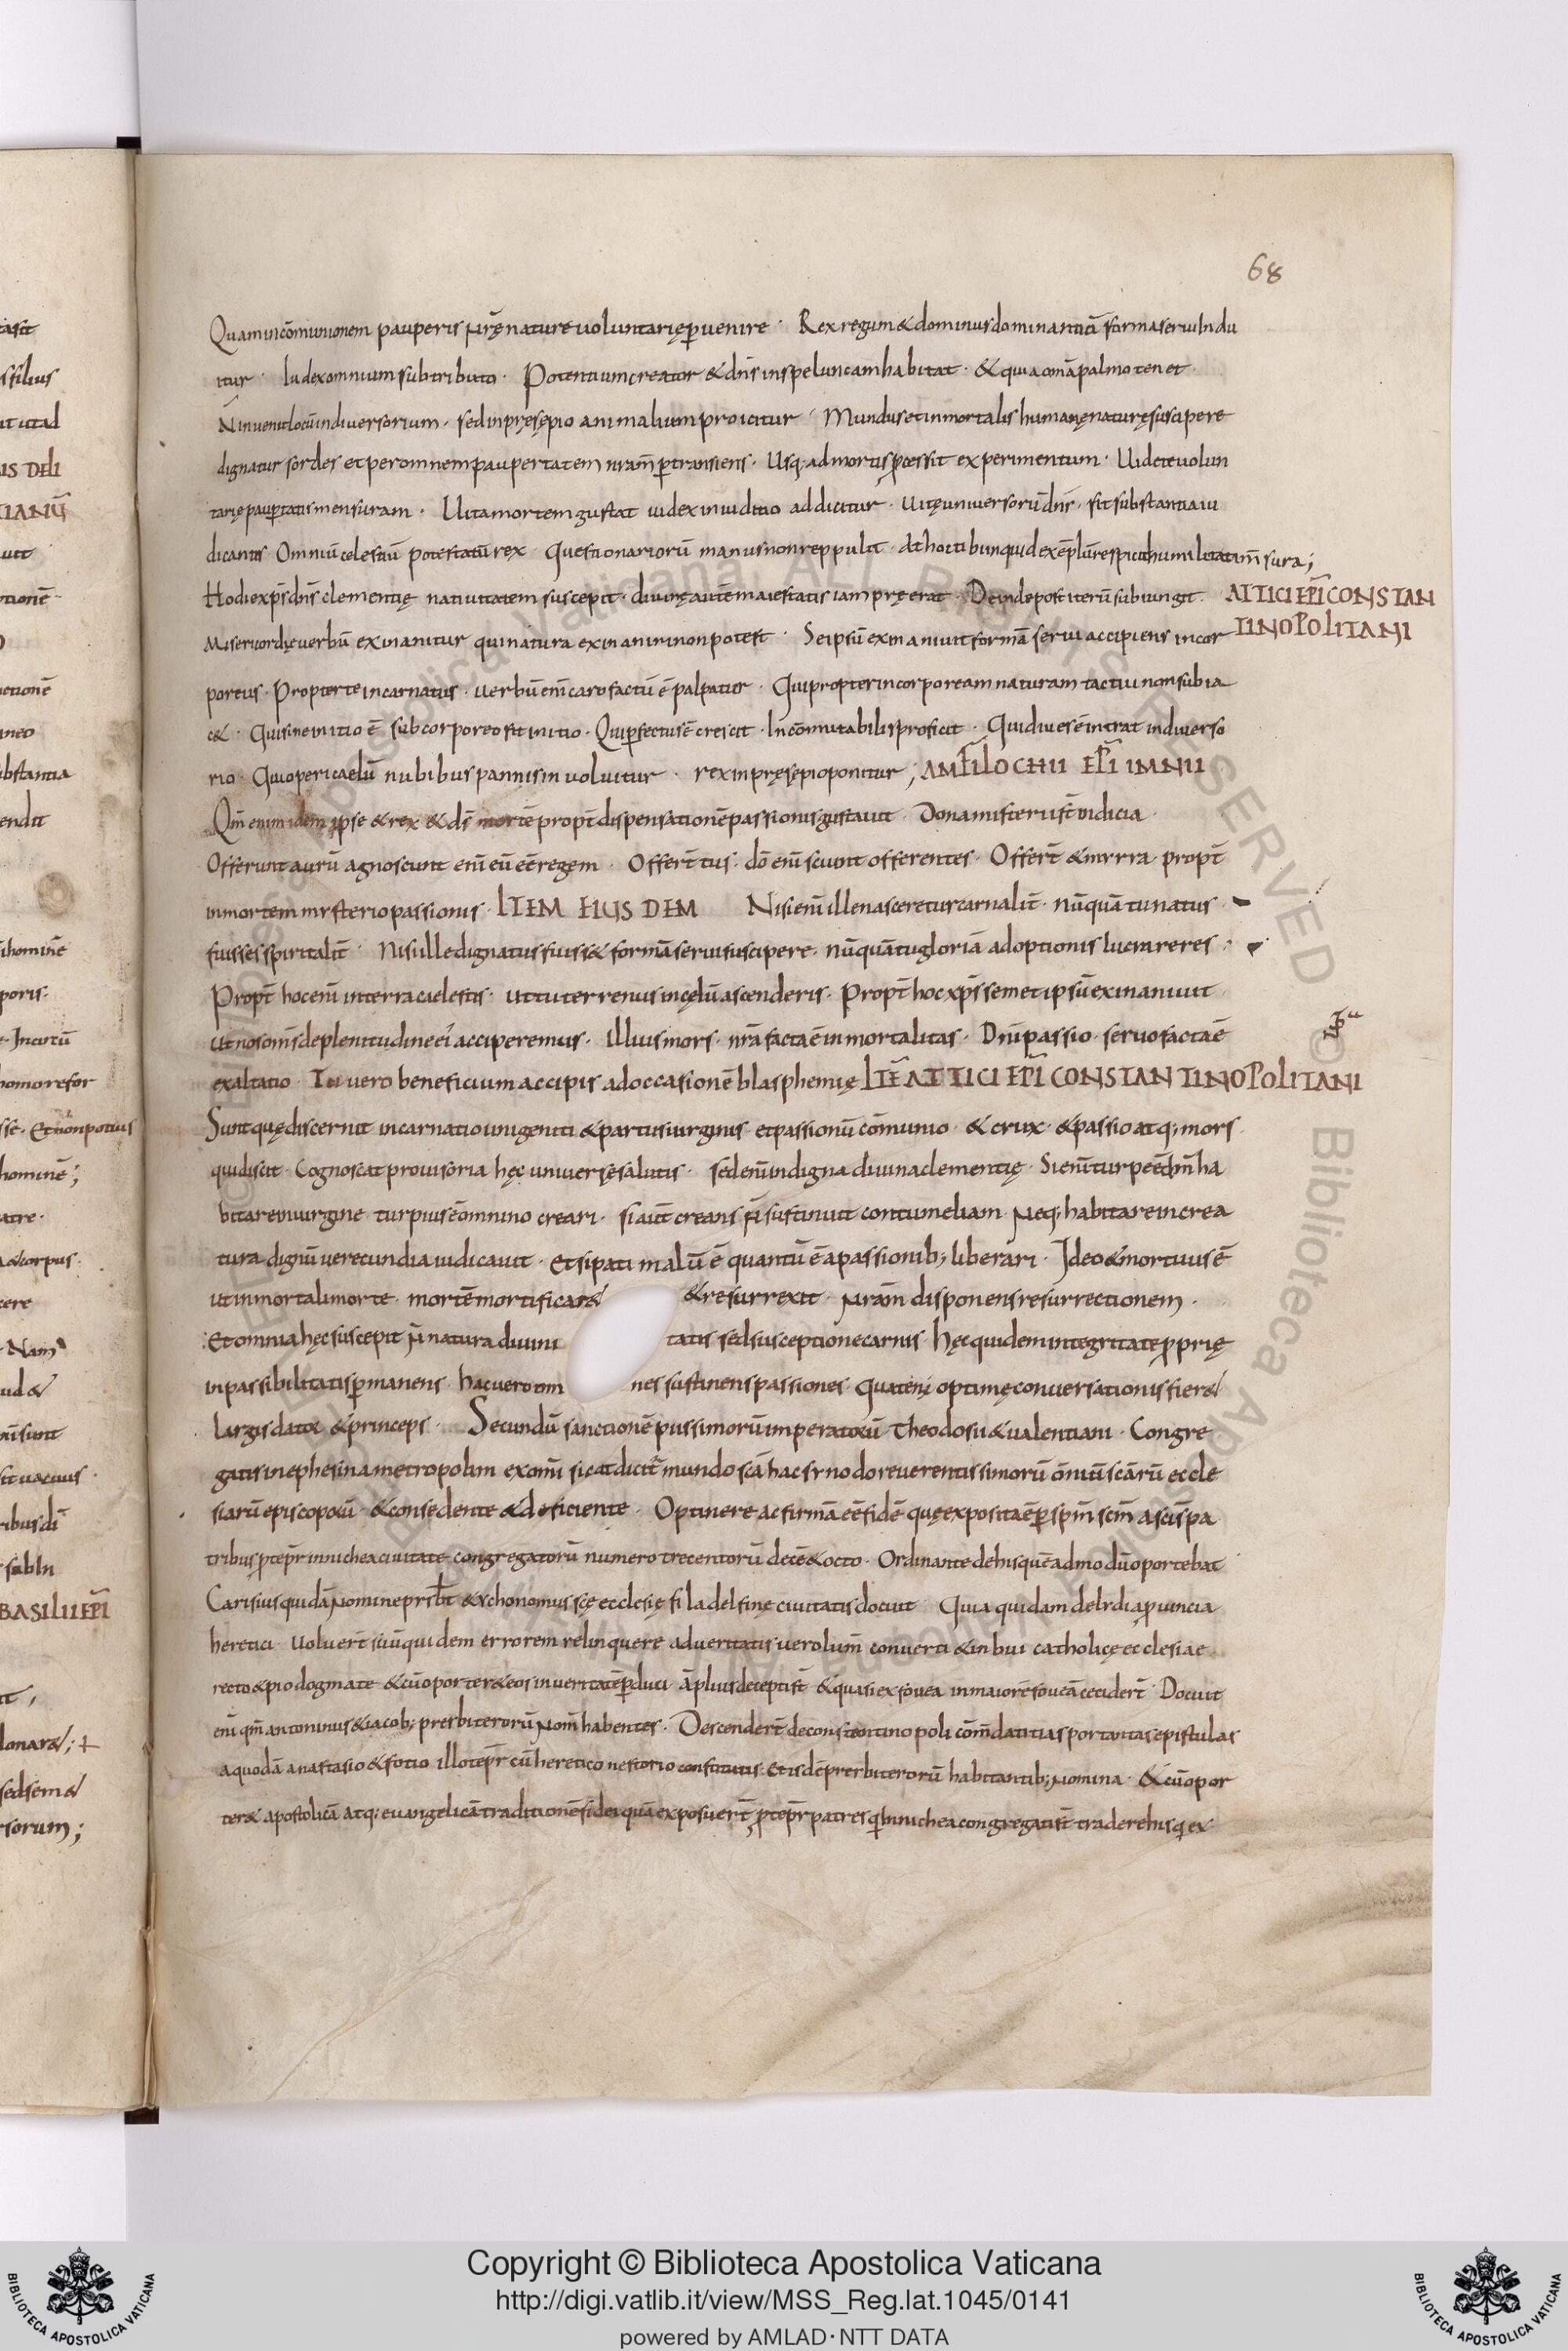 68
Quam in cōmunionem pauperis nr̄ę nature uoluntarię puenire · Rex regum & dominus dominantiū forma serui Indu
itur · Iudex omnium sub tributo · Potentium creator & dn̄s in speluncam habitat · & qui a omā palmo tenet ·
N̄ inuenit locū in diuersorium · sed in pręsępio animalium proicitur · Mundus et inmortalis humanę naturę suscipere
dignatur sordes et per omnem paupertatem nram̄ ptransiens · Usq; ad mortis pcessit experimentum · Uidete uolun
tarię paup̄tatis mensuram · Uita mortem gustat iudex in iuditio addicitur · Uitę uniuersorū dn̄s · fit sub stantia iu
dicantis · Omniū celestiū potestatū rex · Questionariorū manus non reppulit · At hoc tibi unquid exēplū respicit humilitatim̄ sura;
Hodie xp̄s dn̄s clementię natiuitatem suscepit · diuinę autē maiestatis iam pręerat · Deinde post iterū subiungit ATTICI EP̄I CONSTAN
TINOPOLITANI
Misericordię uerbū exinanitur qui natura exinaniri non potest · Se ipsū exinaniuit formā serui accipiens incor
poreus · Propter te incarnatus · uerbū eni͂ caro factū ē palpatur · Qui propter incorpoream naturam tactui non subia
c& · Qui sine initio ē sub corporeo fit initio · Qui pfectus ē crescit · Incōmutabilis proficit · Qui diues ē intrat in diuerso
rio · Qui operi caelū nubibus pannis in uoluitur · rex in pręsępio ponitur; AMFILOCHII EP̄I IMNII
Qm̄ enim idem ipse & rex & ds̄ mortē propt̄ dispensationē passionis gustauit · Dona misterii st̄ indicia ·
Offerunt aurū agnoscunt eni͂ eū eē regem · Offert̄ tus · dō eni͂ scunt offerentes · Offert̄ & mirra · propt̄
inmortem mysterio passionis · ITEM EIUS DEM Nisi eni͂ ille nasceretur carnalit̄ · nūquā tu natus
fuisses spiritalit̄ · Nisi ille dignatus fuiss& formā serui suscipere · nūquā tu gloriā adoptionis lucrareres ·
Propt̄ hoc eni͂ in terra caelestis · ut tu terrenus in cęlū ascenderis · Propt̄ hoc xp̄s semet ipsū exinaniuit
ut nos om̄s de plenitudine ei͂ acciperemus · Illius mors · nr̄a facta ē inmortalitas · Dn̄i passio · seruo facta ē
exaltatio · Tu uero beneficium accipis ad occasionē blasphemię ITĒ ATTICI EP̄I CONSTANTINOPOLITANI
Sunt quę discernit incarnatio unigeniti & partus uirginis · et passionū cōmunio · & crux · & passio atq; mors
qui discit · Cognoscat prouisoria hęc uniuersę salutis · sed eni͂ indigna diuina clementię · Si eni͂ turpe ē dn̄m ha
bitare in uirgine turpius ē omnino creari · si aut̄ creans n̄ sustinuit contumeliam Neq; habitare in crea
tura dignū uerecundia iudicauit · Et si pati malū ē quantū ē a passionib; liberari · Ideo & mortuus ē
ut inmortali morte · mortē mortificar& & resurrexit · Nram̄ disponens resurrectionem ·
Et omnia hęc suscepit n̄ natura diuini tatis sed susceptione carnis hęc quidem integritate pprię
inpassibilitatis pmanens · hac uero om nes sustinens passiones · Quaten; optimę conuersationis fier&
largis dator & princeps · Secundū sanctionē piissimorū imperatorū Theodosii & ualentiani · Congre
gatis in ephesina metropolim ex om̄i sicut dicit̄ mundo scā hac synodo reuerentissimorū om̄iū scārū eccle
siarū episcoporū · & consedente & deficiente · Optinere ac firmā eē fidē quę exposita ē p spm̄ scm̄ a scis̄ pa
tribus ptepr̄ in nichea ciuitate congregatorū numero trecentorū decē & octo · Ordinante de his quē admodū oportebat
Carisius quidā Nomine prsb̄t & ychonomus scę ecclesię filadelfinę ciuitatis docuit Quia quidam de lydia puincia
heretici · Uoluert̄ suūquidem errorem relinquere ad ueritatis uero lum̄ conuerti & inbui catholicę ecclesiae
recto & pio dogmate & cū oporter& eos in ueritatē pduci āplius decepti st̄ & quasi ex fouea in maiorē foueā cecidert̄ Docuit
eni͂ qm̄ antoninus & iacob; prerbiterorū Nom̄ habentes · Descendert̄ de constantinopoli cōm̄datitias portantes epistulas
a quodā anastasio & fotio illo tepr̄ cū heretico nestorio constitutis · Et isdē prerbiterorū habitantib; Nomina · & cū opor
ter& apostolicā atq; euangelicā traditionē fidei quā exposuert̄ ptepr̄ patres qi͂ in nichea congregati st̄ tradere his qi͂ ex
Copyright © Biblioteca Apostolica Vaticana
http://digi.vatlib.it/view/MSS_Reg.lat.1045/0141
powered by AMLAD·NTT DATA
BIBLIOTECA APOSTOLICA VATICANA
BIBLIOTECA APOSTOLICA VATICANA